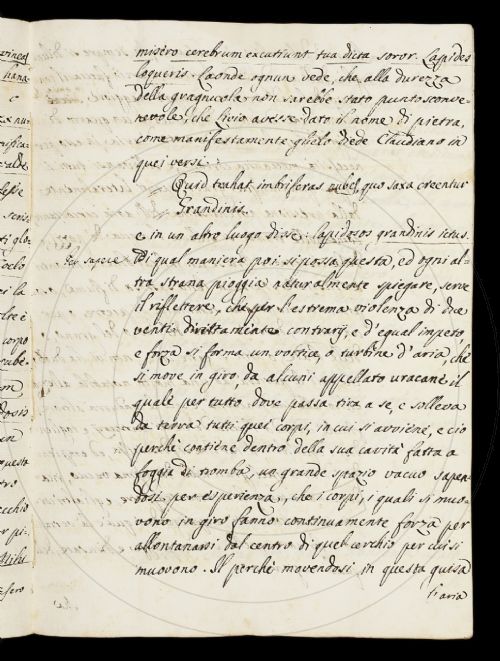 misero cerebrum excutiunt tua dicta soror. Lapides
loqueris. Laonde ognun vede, che alla durezza
della gragnuola non sarebbe stato punto sconve-
nevole, che Livio avesse dato il nome di pietra,
come manifestamente glielo diede Claudiano in
quei versi:
Quid trahat imbriferas nubes, quo saxa creentur
Grandinis.
e in un altro luogo disse: lapidosos grandinis ictus.
Di qual maniera poi si possa questa, ed ogni al-
tra strana pioggia naturalmente spiegare, serve
il riflettere, che per l'estrema violenza di due
venti dirittamente contrarj, e d'egual impeto
e forza si forma un vortice, o turbine d'aria, che
si move in giro, da alcuni appellato uracane il
quale per tutto, dove passa tira a se, e solleva
da terra tutti quei corpi, in cui si avviene, e ciò
perchè contiene dentro della sua cavità fatta a
foggia di tromba, un grande spazio vacuo sapen-
dosi per esperienza, che i corpi, i quali si muo-
vono in giro fanno continuamente forza per
allontanarsi dal centro di quel cerchio per cui si
muovono. Il perchè movendosi in questa guisa
l'aria